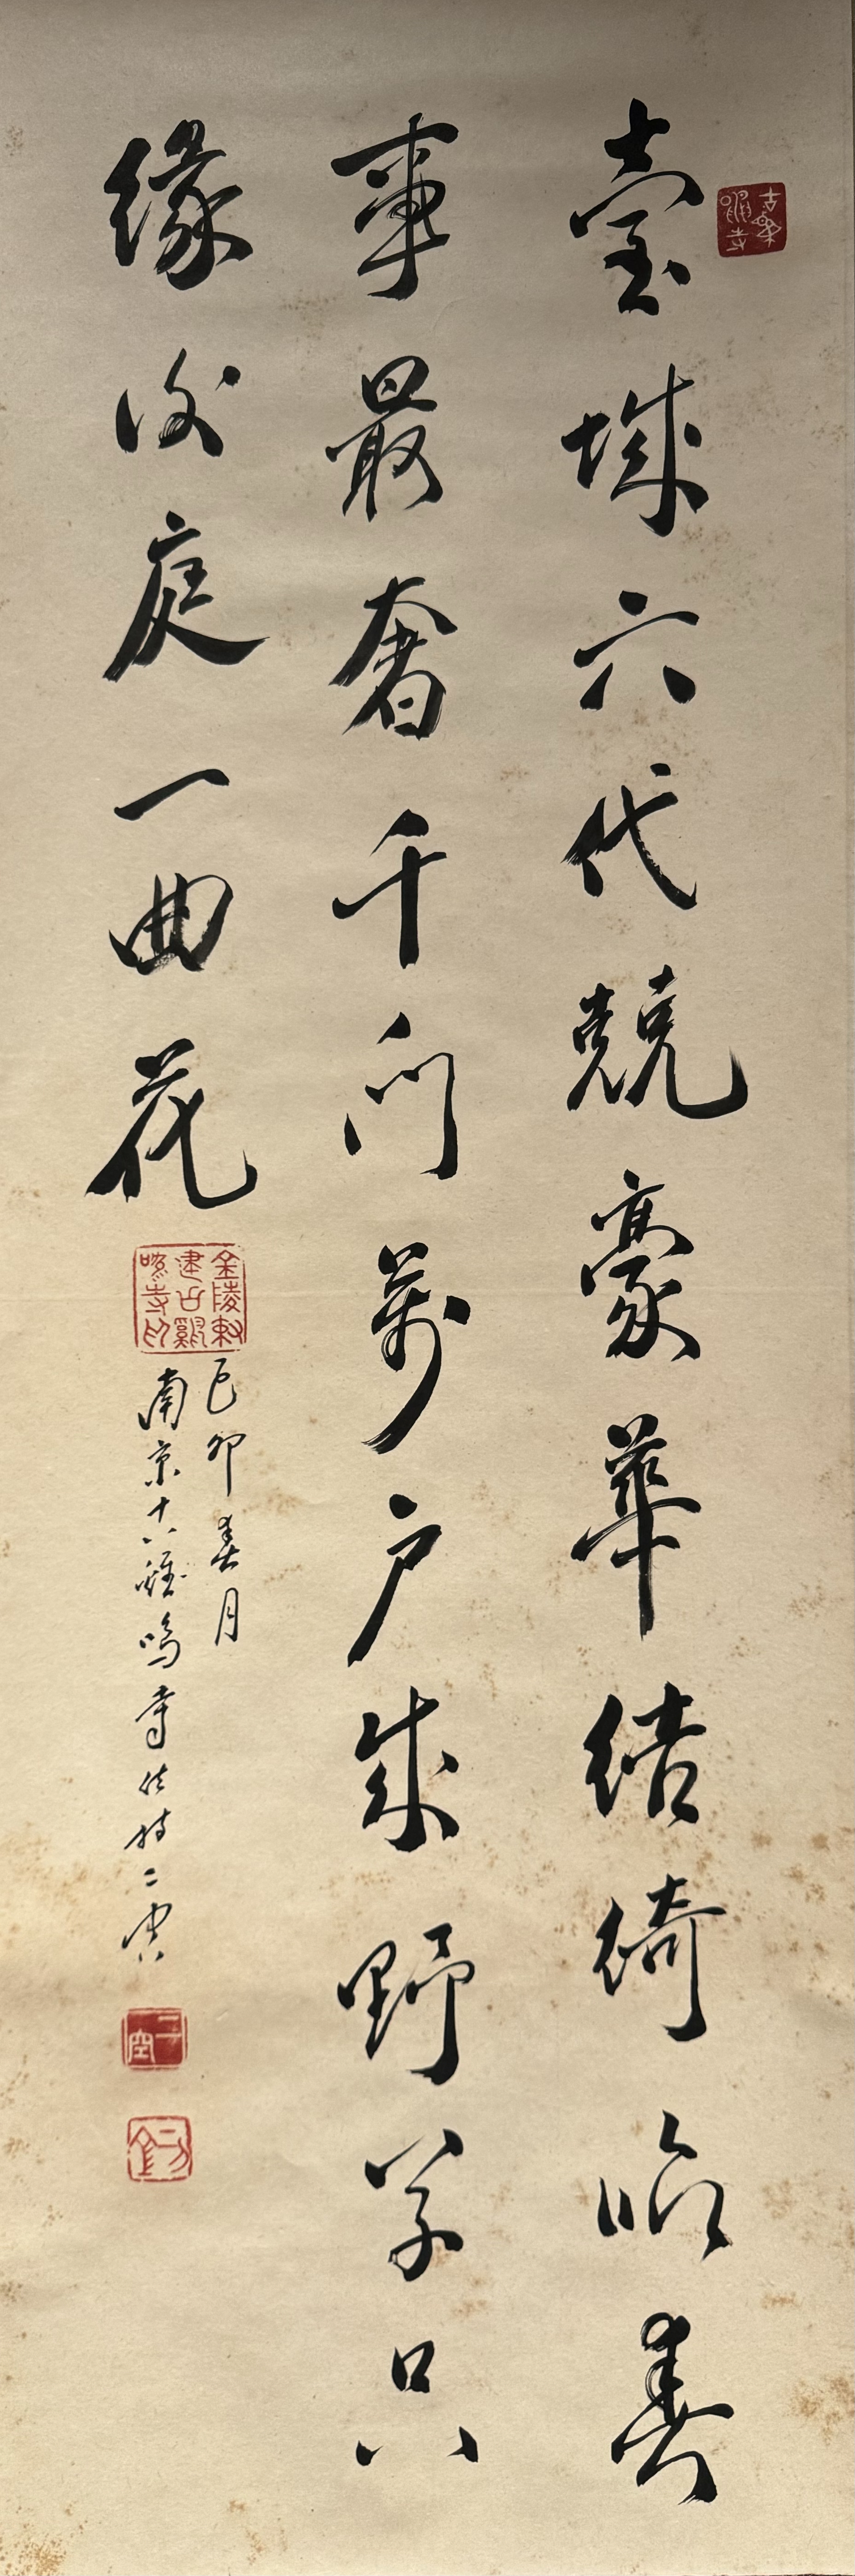 臺城六代競豪華結綺臨春
事最奢千門萬户成野草只
緣後庭一曲花
己卯春月
南京古雞鳴寺住持二空
金陵敕建古雞鳴寺印
古雞鳴寺
二空